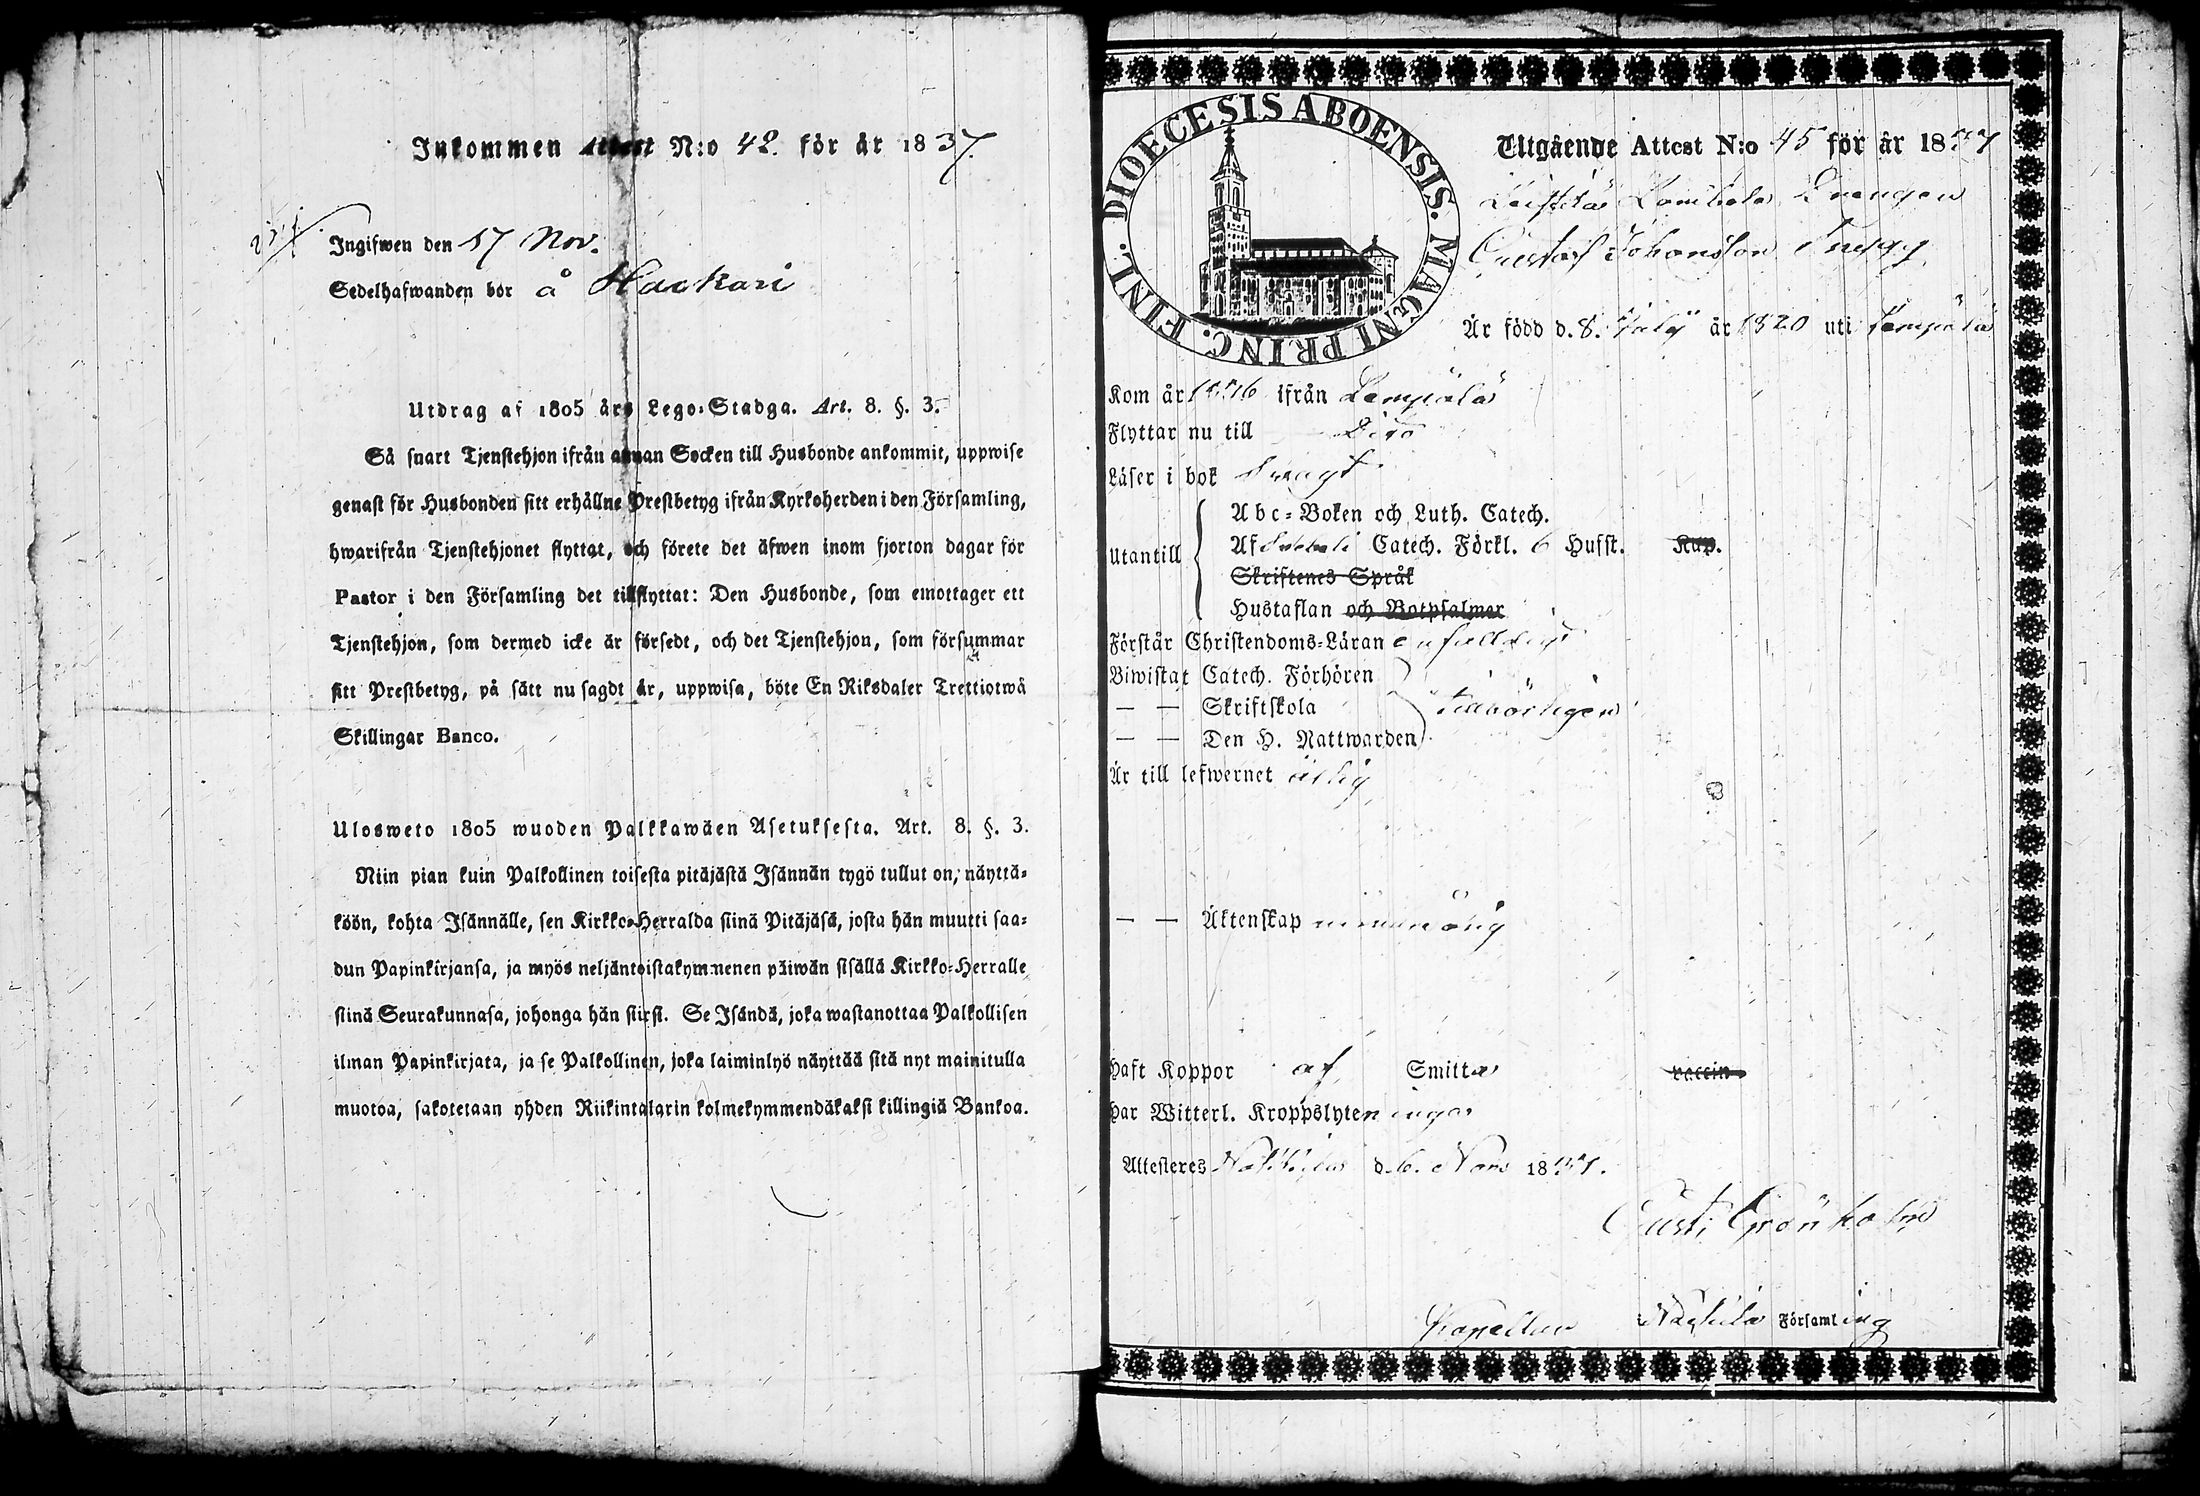 Inkommen Attest N:o 42. för år 1837.
Ingifwen den 17 Nov.
Sedelhafwanden bor å Haakari
Utdrag af 1805 års Lego-Stadga. Art. 8. §. 3.
Så snart Tjenstehjon ifrån annan Socken till Husbonde ankommit, uppwise
genast för Husbonden sitt erhållne Prestbetyg ifrån Kyrkoherden i den Församling,
hwarifrån Tjenstehjonet flyttat, och förete det äfwen inom fjorton dagar för
Pastor i den Församling det tillflyttat: Den Husbonde, som emottager ett
Tjenstehjon, som dermed icke är försedt, och det Tjenstehjon, som försummar
sitt Prestbetyg, på sätt nu sagdt är, uppwisa, böte En Riksdaler Trettiotwå
Skillingar Banco.
Ulosweto 1805 wuoden Palkkawäen Asetuksesta. Art. 8. §. 3.
Niin pian kuin Palkollinen toisesta pitäjästä Isännän tygö tullut on, näyttä-
köön, kohta Isännälle, sen Kirkko-Herralda siinä Pitäjäsä, josta hän muutti saa-
dun Papinkirjansa, ja myös neljäntoistakymmenen päiwän sisällä Kirkko-Herralle
siinä Seurakunnasa, johonga hän siirsi. Se Isändä, joka wastanottaa Palkollisen
ilman Papinkirjata, ja se Palkollinen, joka laiminlyö näyttää sitä nyt mainitulla
muotoa, sakotetaan yhden Riikintalarin kolmekymmendäkaksi killingiä Bankoa.
DIOECESIS ABOENSIS. MAGNI PRINC. FINL.
Utgående Attest N:o 45 för år 1837
Drengen
Gustaf Johansson
Är född d. 8. July år 1820 uti Lempälä
Kom år 1836 ifrån Lempälä
Flyttar nu till Dito
Läser i bok Swagt
Utantill
Abc-Boken och Luth. Catech.
Af Swebeli Catech. Förkl. 6 Hufst. Kap.
Skriftenes Språk
Hustaflan och Botpsalmer
Förstår Christendoms-Läran enfalldigt
Biwistat Catech. Förhören
— — Skriftskola tillbörligen
— — Den H. Nattwarden
Är till lefwernet ärlig
— — Äktenskap
Haft Koppor af Smitta vaccin
Har Witterl. Kroppslyten inga
Attesteres d. 6. Nov 1837.
Gust. Grönholm
Kapellan i Församling